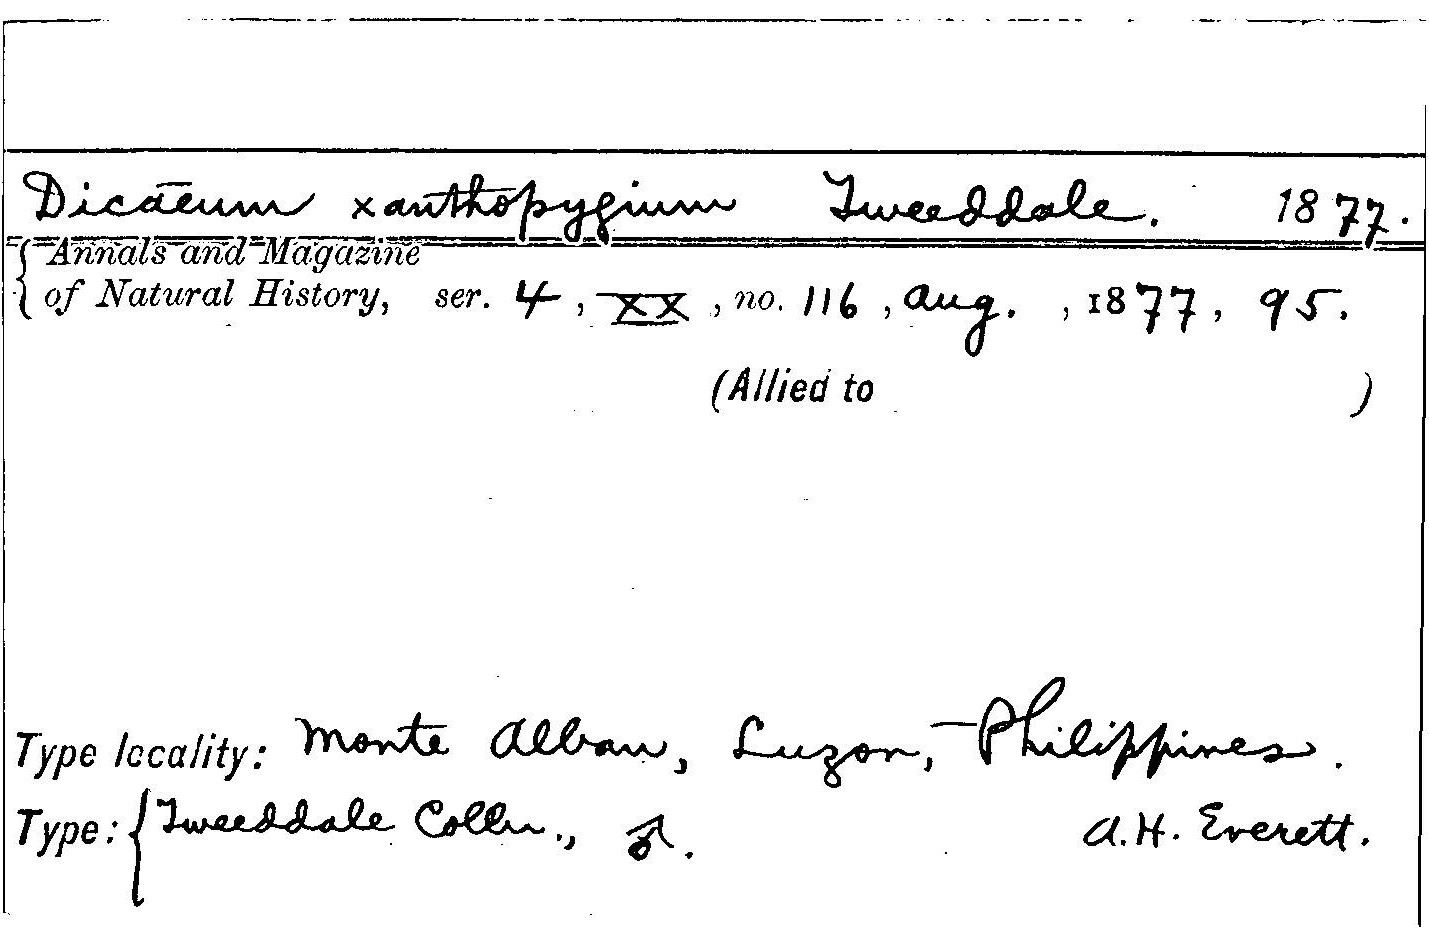 Dicaeum xanthopygium Tweeddale. 1877.
Annals and Magazine
of Natural History, ser. 4, XX, no. 116, Aug., 1877, 95.
(Allied to )
Type locality: Monte Alban, Luzon, Philippines.
Type: Tweeddale Colln., ♂. A.H. Everett.